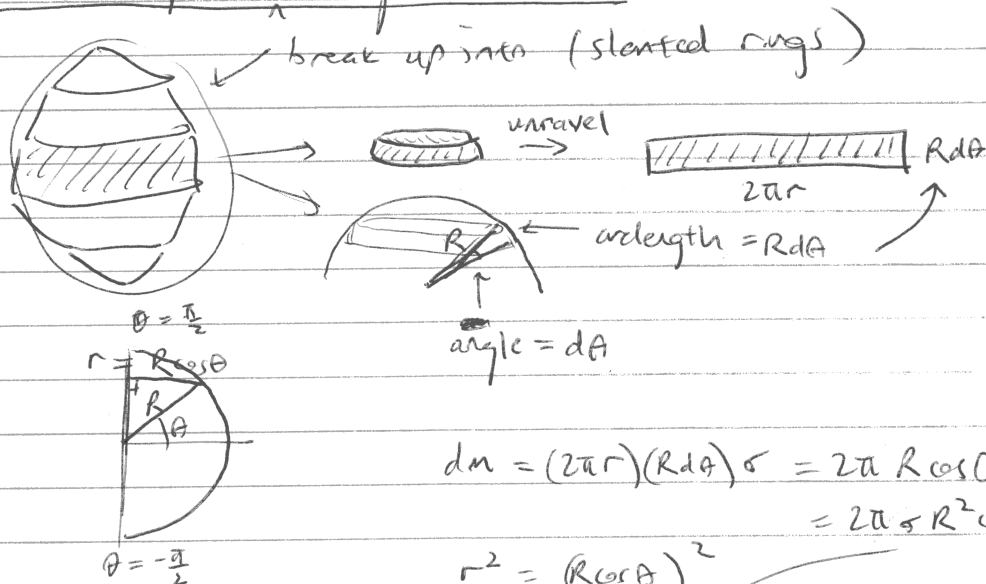 break up into (slanted rings)
unravel
RdθA
2πr
R
arclength = Rdθ
angle = dθ
θ = π/2
r = Rcosθ
R
θ
θ = -π/2
dm = (2πr)(Rdθ)σ = 2π Rcos
= 2πσR²
r² = (Rcosθ)²